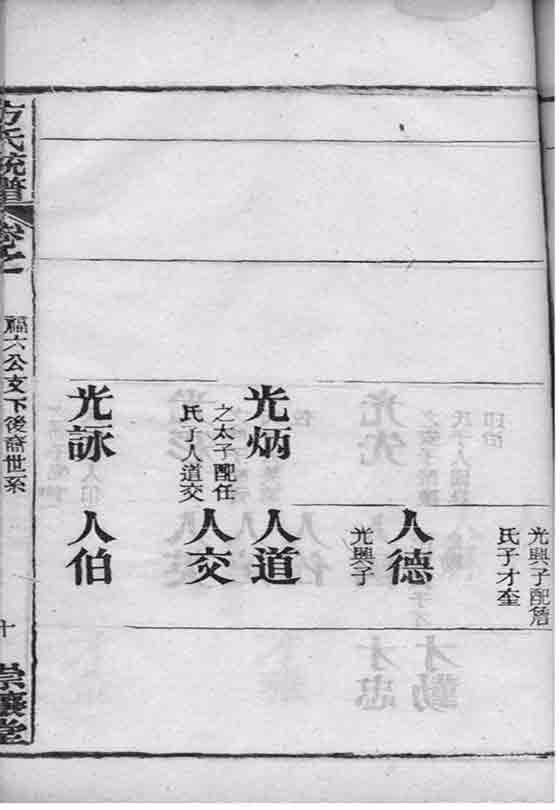 光興子配詹
氏子才奎
人德
光興子
光炳
之太子配任
氏子人道交
人道
人交
光詠
人伯
方氏統譜
卷之
福六公支下後裔世系
十
崇讓堂